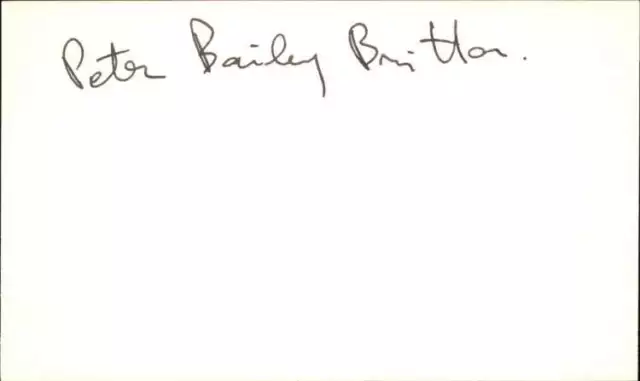 Peter Bailey Britton.